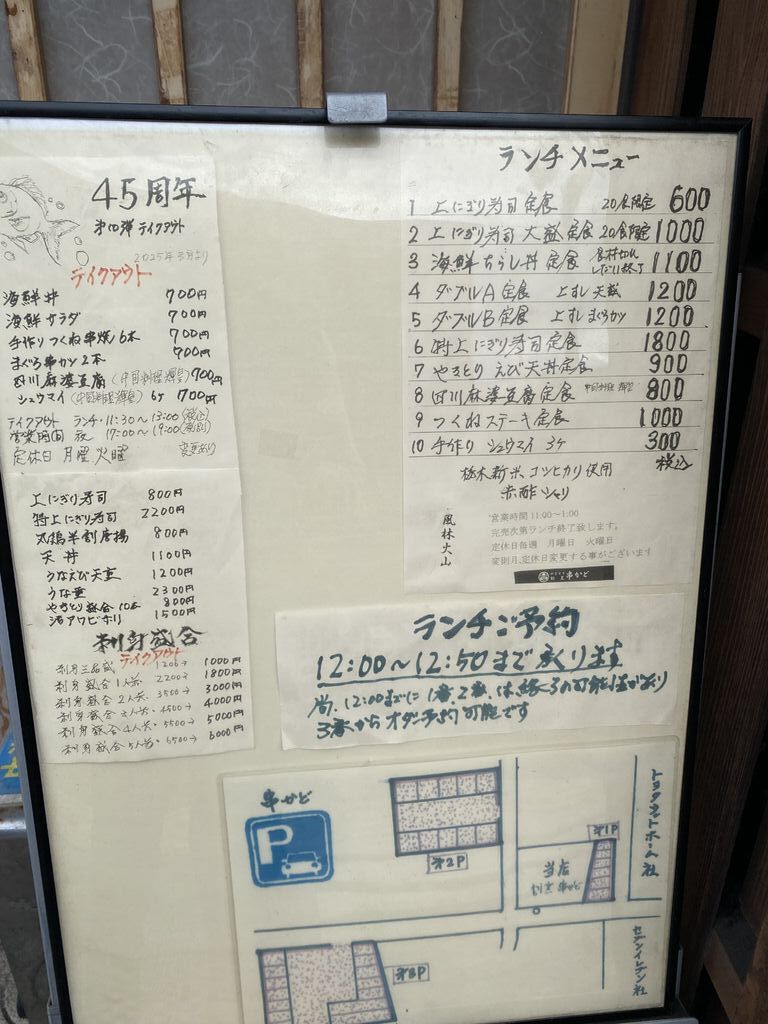 45周年
第10弾 テイクアウト
2025年3月より
テイクアウト
海鮮丼 700円
海鮮サラダ 700円
手作りつくね串焼 6本 700円
まぐろ串かつ 2本 700円
四川麻婆豆腐 700円
シュウマイ 6ケ 700円
テイクアウト ランチ・11:30〜13:00
営業時間 夜 17:00〜19:00
定休日 月曜 火曜 変更あり
上にぎり寿司 800円
特上にぎり寿司 2200円
丸鶏半割唐揚 800円
天丼 1100円
うなえび天重 1200円
うな重 2300円
やきとり盛合 10本 800円
活アワビ 1500円
刺身盛合
テイクアウト
刺身三品盛 1200→ 1000円
刺身盛合 1人前 2200→ 1800円
刺身盛合 2人前・3500→ 3000円
刺身盛合 3人前・4500→ 4000円
刺身盛合 4人前・5500→ 5000円
刺身盛合 5人前・6500→ 6000円
ランチメニュー
1 上にぎり寿司定食 20食限定 600
2 上にぎり寿司 大盛定食 20食限定 1000
3 海鮮ちらし丼定食 食材切れしだい終了 1100
4 ダブルA定食 上すし 天ぷら 1200
5 ダブルB定食 上すし まぐろカツ 1200
6 特上にぎり寿司定食 1800
7 やきとり えび天丼定食 900
8 四川麻婆豆腐定食 800
9 つくねステーキ定食 1000
10 手作り シュウマイ 3ケ 300
税込
栃木新米コシヒカリ使用
赤酢シャリ
風林火山
営業時間 11:00~1:00
完売次第ランチ終了致します。
定休日毎週 月曜日 火曜日
変則月、定休日変更する事がございます
串かど
ランチご予約
12:00〜12:50まで承ります
尚、12:00までに1番、2番、は終了の可能性があり
3番からオーダー予約可能です
串かど
P
第2P
第1P
当店
割烹 串かど
第3P
セブンイレブン社